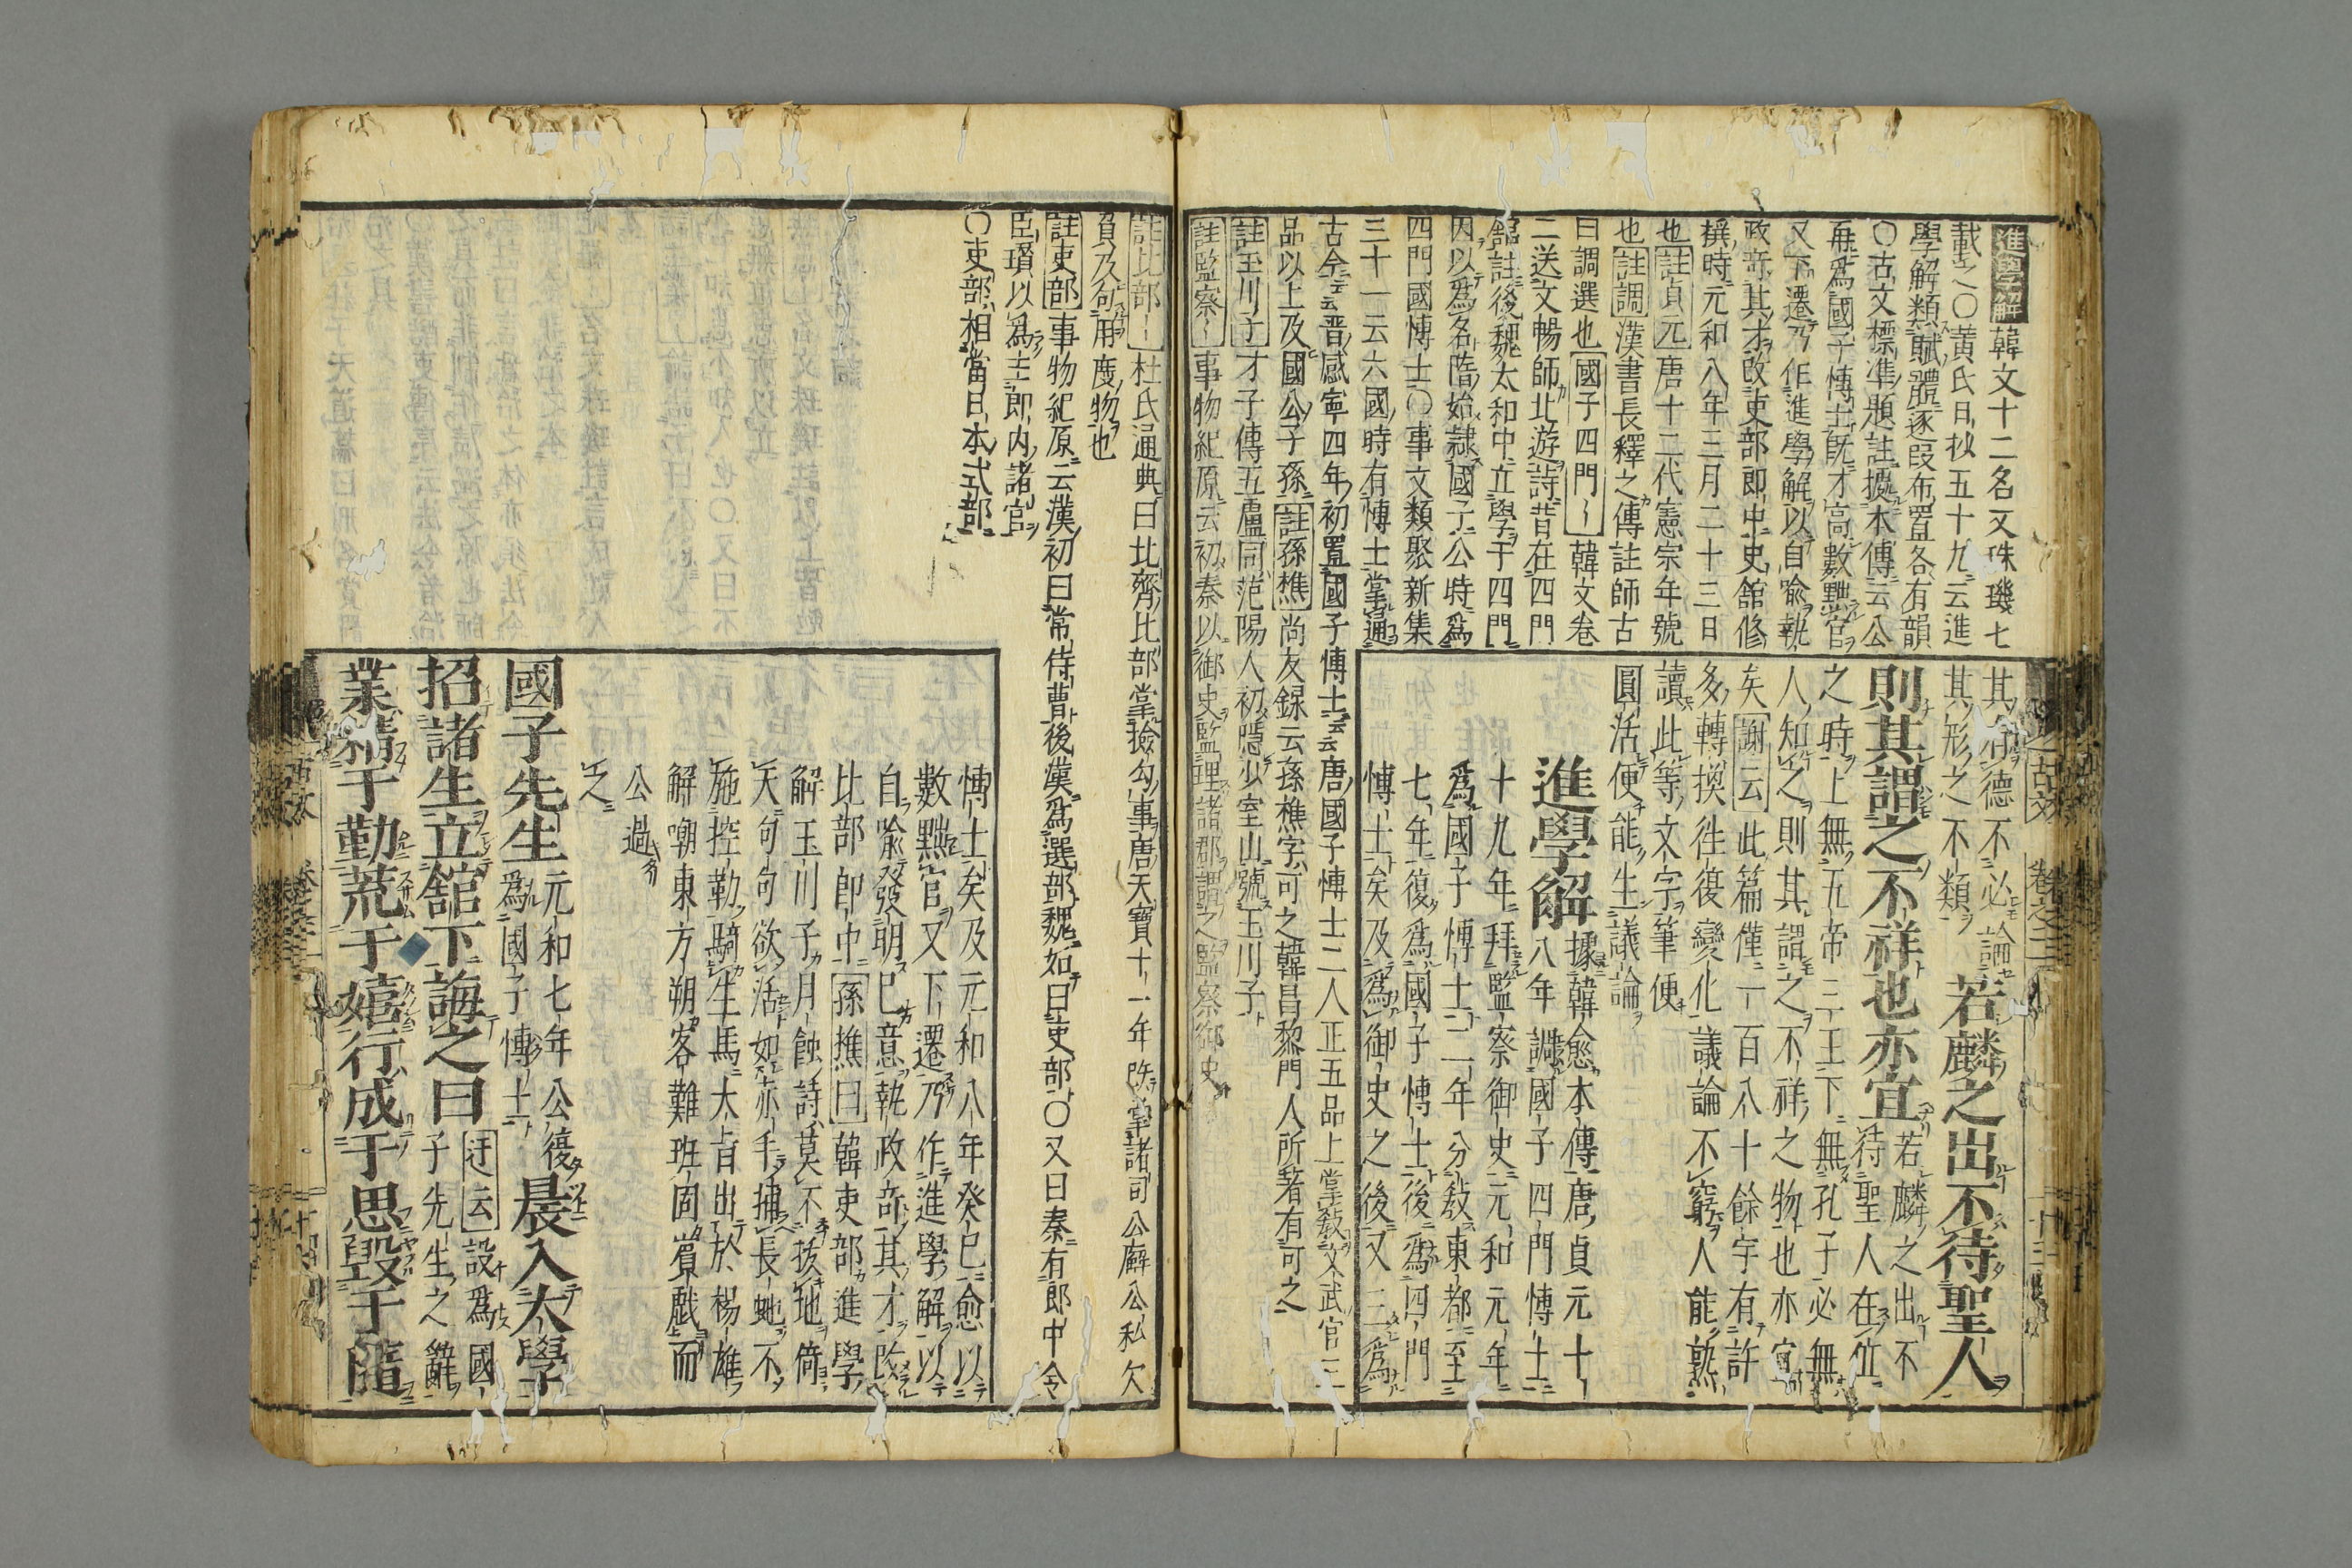 進學解 韓文十二名文珠璣七
載之〇黄氏日抄五十九云進
學解類賦體逐段布置各有韻
〇古文標準題註據本傳云公
再爲國子博士既才高數黜官
又下遷乃作進學解以自喩執
政奇其才改吏部郎中史館修
撰時元和八年三月二十三日
也 註貞元 唐十二代憲宗年號
也 註調 漢書長釋之傳註師古
曰調選也 國子四門 韓文卷
二送文暢師北遊詩昔在四門
館註後魏太和中立學于四門
因以爲名隋始隷國子公時爲
四門國博士〇事文類聚新集
三十一云六國時有博士掌通
古今云云晋感寧四年初置國子博士云云唐國子博士二人正五品上掌敎文武官三
品以上及國公子孫 註孫樵 尚友録云孫樵字可之韓昌黎門人所著有可之
註玉川子 才子傳五盧同范陽人初隱少室山號玉川子
註監察 事物紀原云初秦以御史監理諸郡謂之監察御史
其爲德不必論
其形之不類
若麟之出不待聖人
則其謂之不祥也亦宜
若麟之出不
待聖人在位
之時上無五帝三王下無孔子必無
人知之則其謂之不祥之物也亦宜
矣 謝云 此篇僅一百八十餘字有許
多轉換往復變化議論不窮人能熟
讀此等文字筆便
圓活便能生議論
進學解
據韓愈本傳唐貞元十
八年調國子四門博士
十九年拜監察御史元和元年
爲國子博士二年分敎東都至
七年復爲國子博士後爲四門
博士矣及爲御史之後又三爲
註比部 杜氏通典曰北齊比部掌撿勾事唐天寶十一年改掌諸司公廨公私欠
負及勾用度物也
註吏部 事物紀原云漢初曰常侍曹後漢爲選部魏如曰吏部〇又曰秦有郎中令
臣瓚以爲主郎内諸官
〇吏部相當日本式部
博士矣及元和八年癸巳愈以
數黜官又下遷乃作進學解以
自喩發明已意執政奇其才改
比部郎中 孫樵曰 韓吏部進學
解玉川子月蝕詩莫不拔地倚
天句句欲活如亦手捕長虵不
施控勒騎生馬大旨出於楊雄
解嘲東方朔客難班固賓戲而
公過
之
國子先生
元和七年公復
爲國子博士
晨入太學
招諸生立舘下誨之曰
迂云 設爲國
子先生之辭
業精于勤荒于嬉行成于思毀于隨